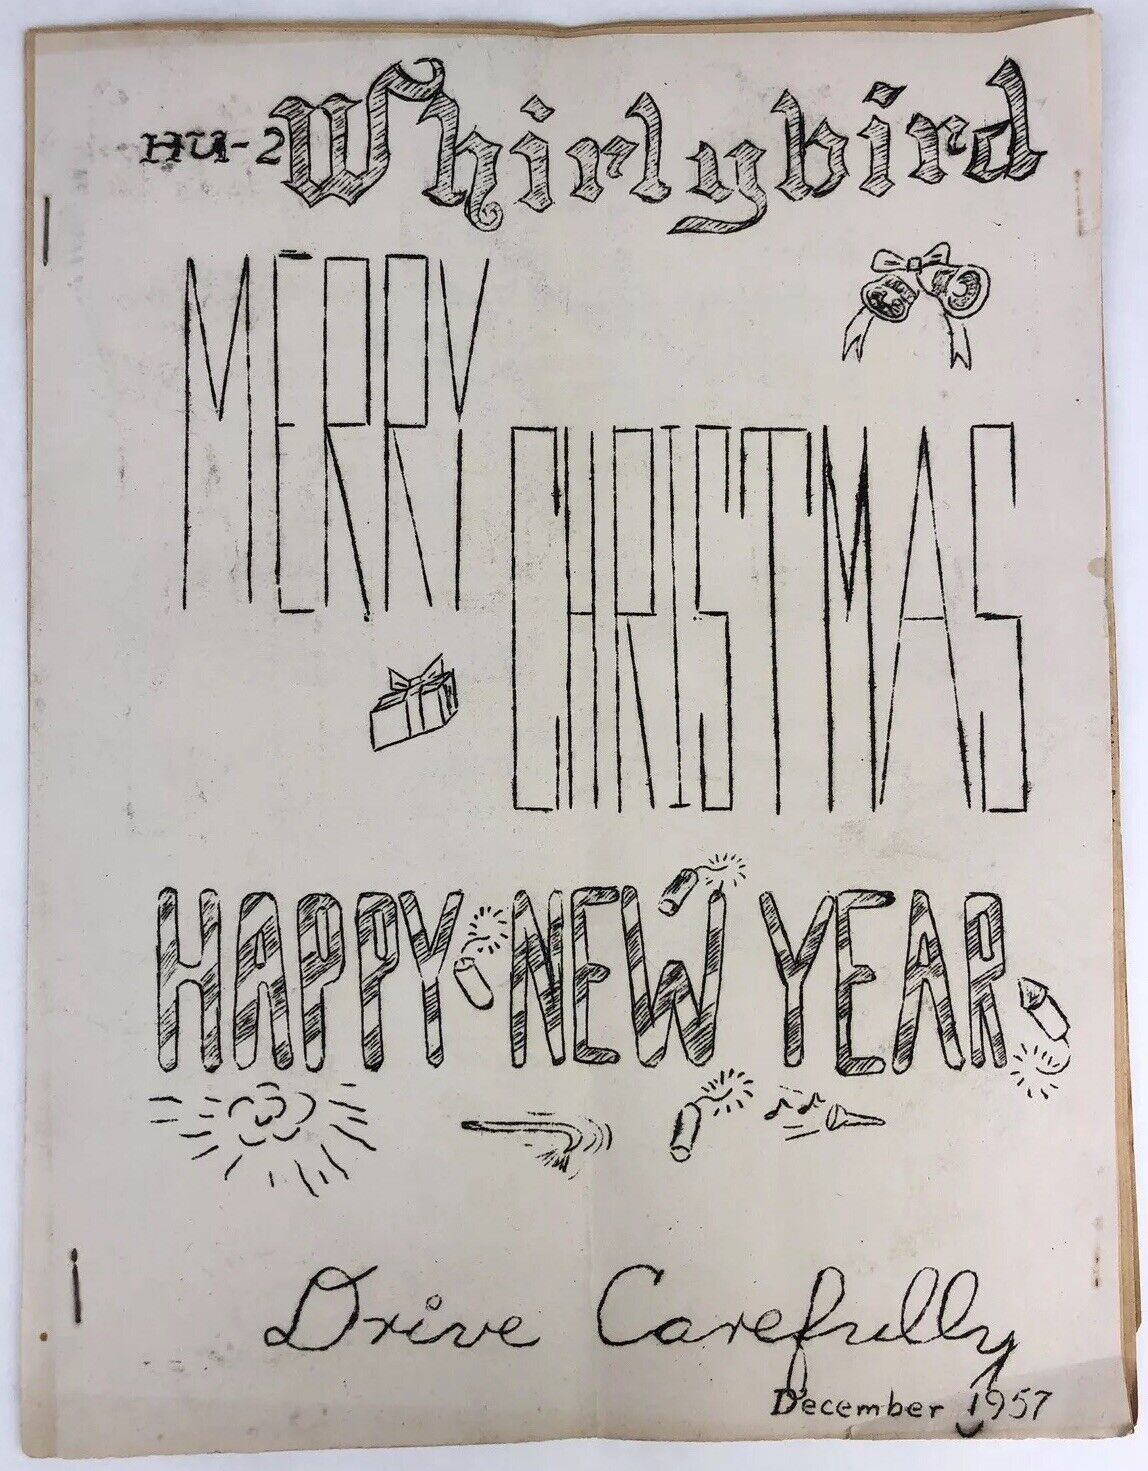 HU-2 Whirlybird
MERRY
CHRISTMAS
HAPPY NEW YEAR
Drive Carefully
December 1957